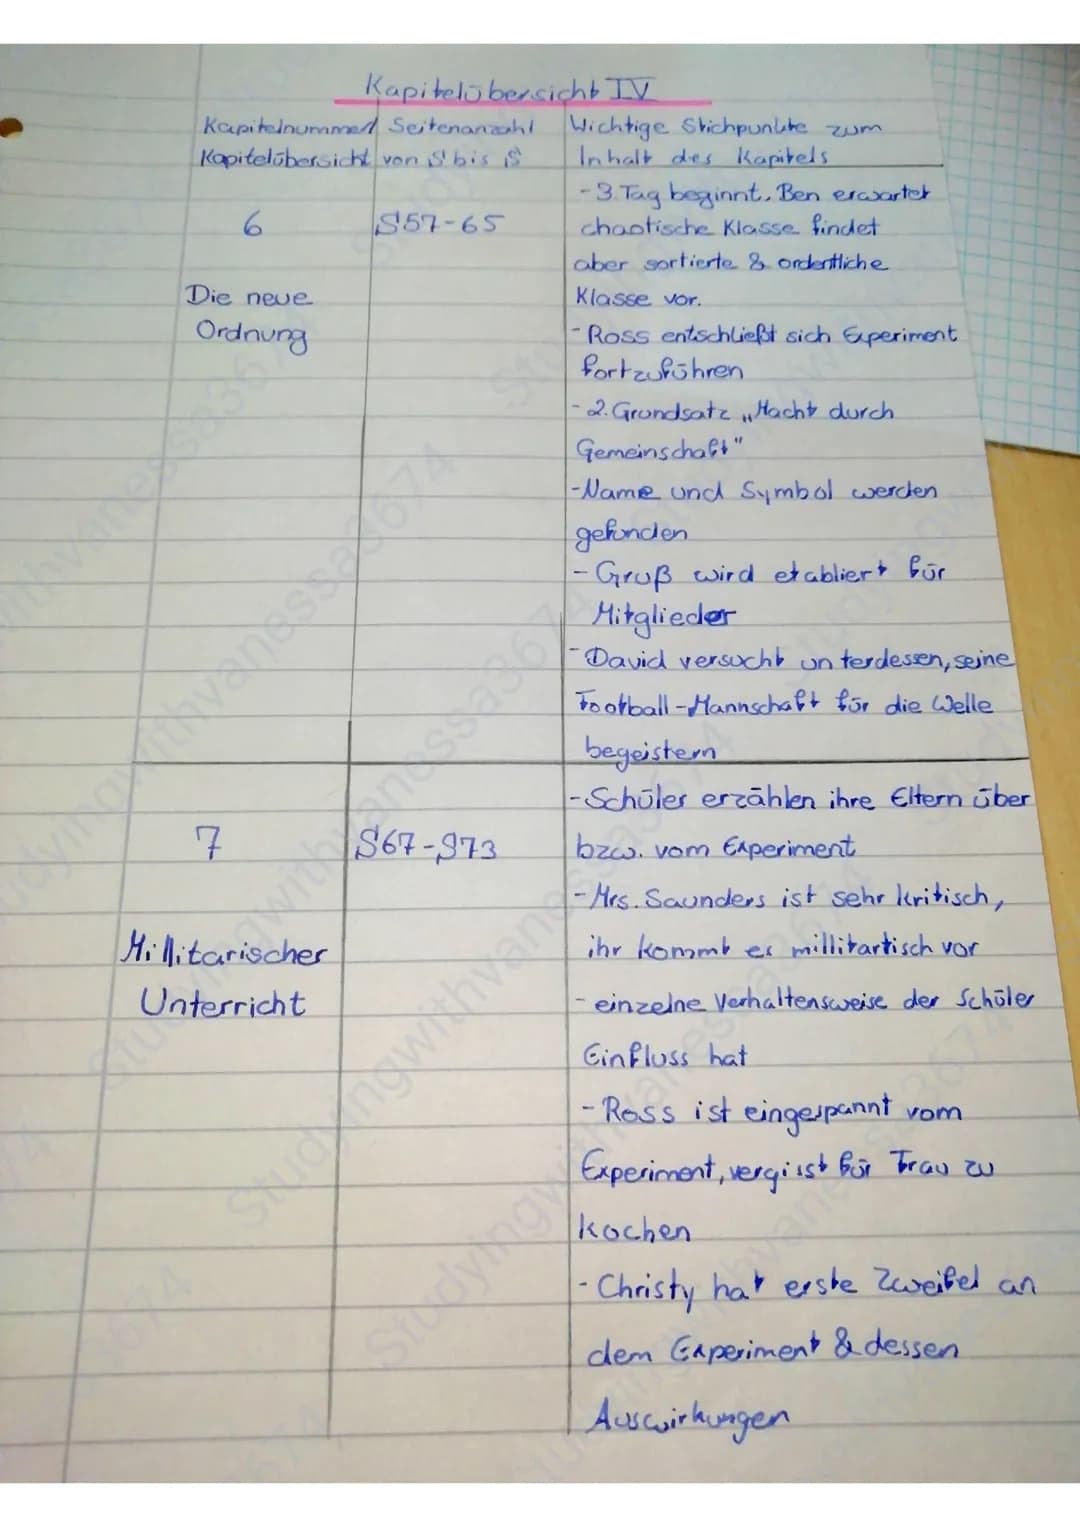 Kapitelübersicht IV
Kapitelnummer/ Seitenanzahl Wichtige Stichpunkte zum
Kapitelübersicht von S bis S Inhalt des Kapitels
- 3. Tag beginnt, Ben erwartet
6 S57-65 chaotische Klasse findet
aber sortierte & ordentliche
Die neue Klasse vor.
Ordnung - Ross entschließt sich Experiment
fortzuführen
- 2. Grundsatz „Macht durch
Gemeinschaft"
- Name und Symbol werden
gefunden
- Gruß wird etabliert für
Mitglieder
- David versucht unterdessen, seine
Football-Mannschaft für die Welle
begeistern
- Schüler erzählen ihre Eltern über
7 S67-S73 bzw. vom Experiment
- Mrs. Saunders ist sehr kritisch,
Millitarischer ihr kommt es millitartisch vor
Unterricht - einzelne Verhaltensweise der Schüler
Einfluss hat
- Ross ist eingespannt vom
Experiment, vergisst für Frau zu
kochen
- Christy hat erste Zweifel an
dem Experiment & dessen
Auswirkungen
Studyingwithvanessa3674